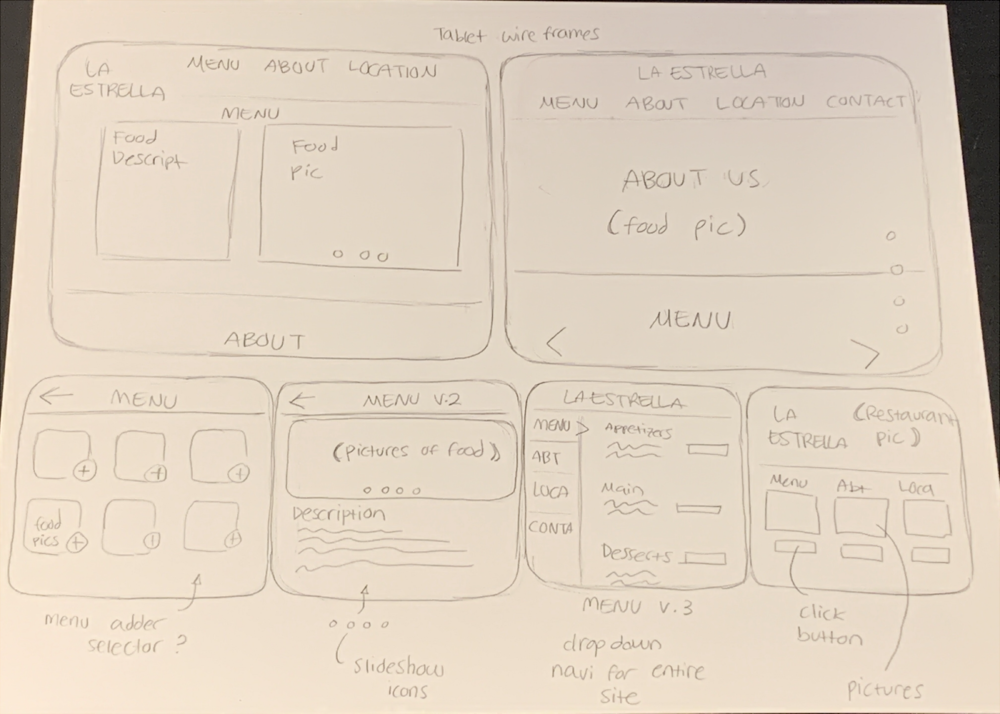 Tablet wire frames
LA
ESTRELLA
MENU ABOUT LOCATION
MENU
Food
Descript
Food
Pic
ABOUT
LA ESTRELLA
MENU ABOUT LOCATION CONTACT
ABOUT US
(food pic)
MENU
MENU
food
pics
menu adder
selector ?
MENU V.2
(pictures of food)
Description
slideshow
icons
LA ESTRELLA
MENU
ABT
LOCA
CONTA
Appetizers
Main
Dessects
MENU V.3
drop down
navi for entire
site
LA
ESTRELLA
(Restaurant
pic)
Menu Abt Loca
click
button
pictures